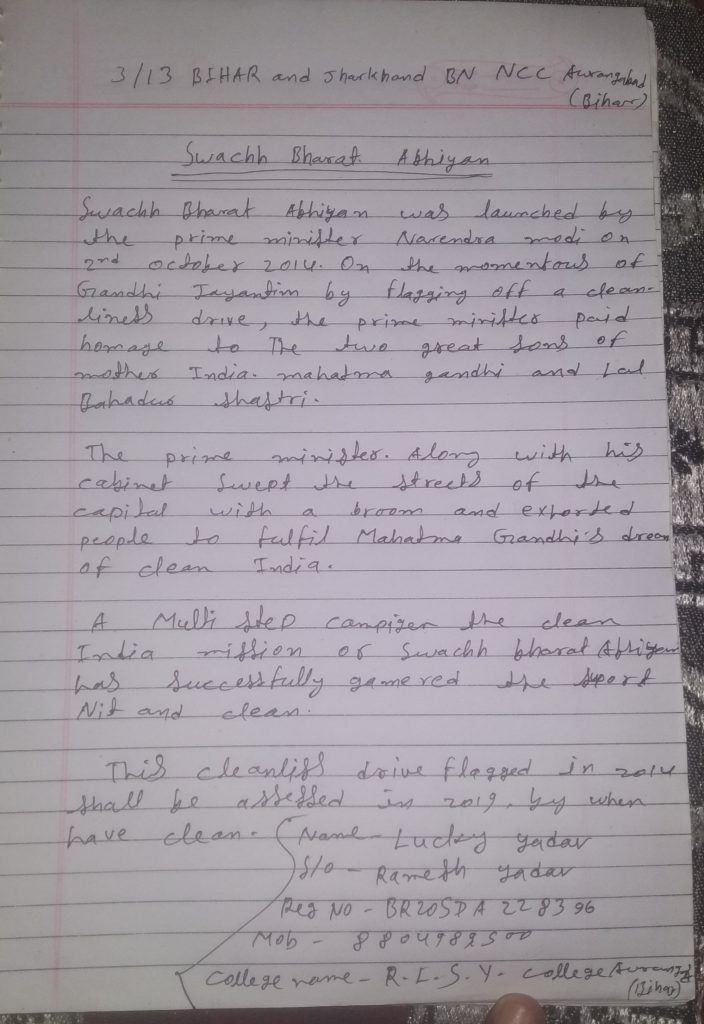 3/13 BIHAR and Jharkhand BN NCC Aurangabad
(Bihar)
Swachh Bharat Abhiyan
Swachh Bharat Abhiyan was launched by
the prime minister Narendra modi on
2nd october 2014. On the momentous of
Gandhi Jayantim by flagging off a clean-
liness drive, the prime minister paid
homage to The two great sons of
mother India. mahatma gandhi and Lal
Bahadur shastri.
The prime minister. Along with his
cabinet swept the streets of the
capital with a broom and exhorted
people to fulfil Mahatma Gandhi's dream
of clean India.
A Multi step campigen the clean
India mission or Swachh bharat Abhigan
has successfully gamered the suport
Nit and clean.
This cleanliss drive flagged in 2014
shall be assessed in 2019. by when
have clean. Name - Lucky yadav
S/o - Ramesh yadav
Reg NO - BR20SDA 228396
Mob - 8804989500
College name - R. L. S. Y. college Aurangabad
(Bihar)